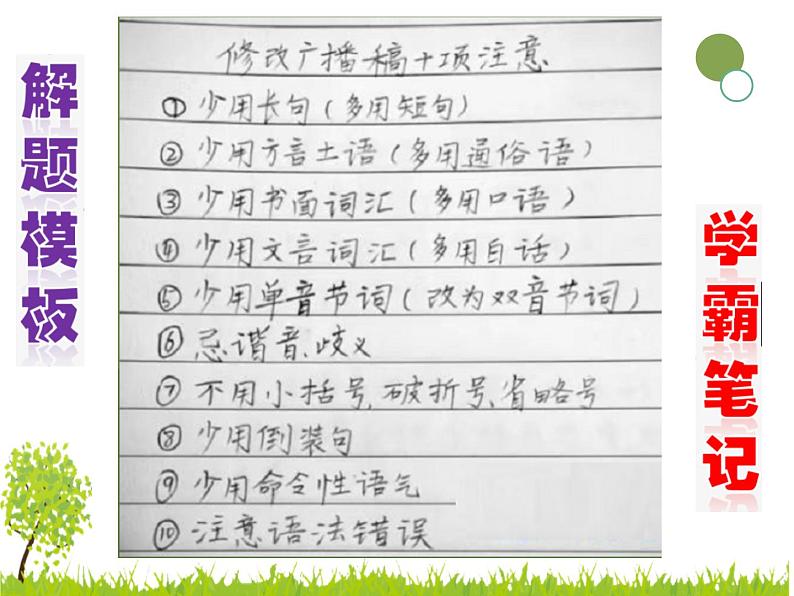 解题模板
修改广播稿十项注意
①少用长句(多用短句)
②少用方言土语(多用通俗语)
③少用书面词汇(多用口语)
④少用文言词汇(多用白话)
⑤少用单音节词(改为双音节词)
⑥忌谐音、歧义
⑦不用小括号、破折号、省略号
⑧少用倒装句
⑨少用命令性语气
⑩注意语法错误
学霸笔记